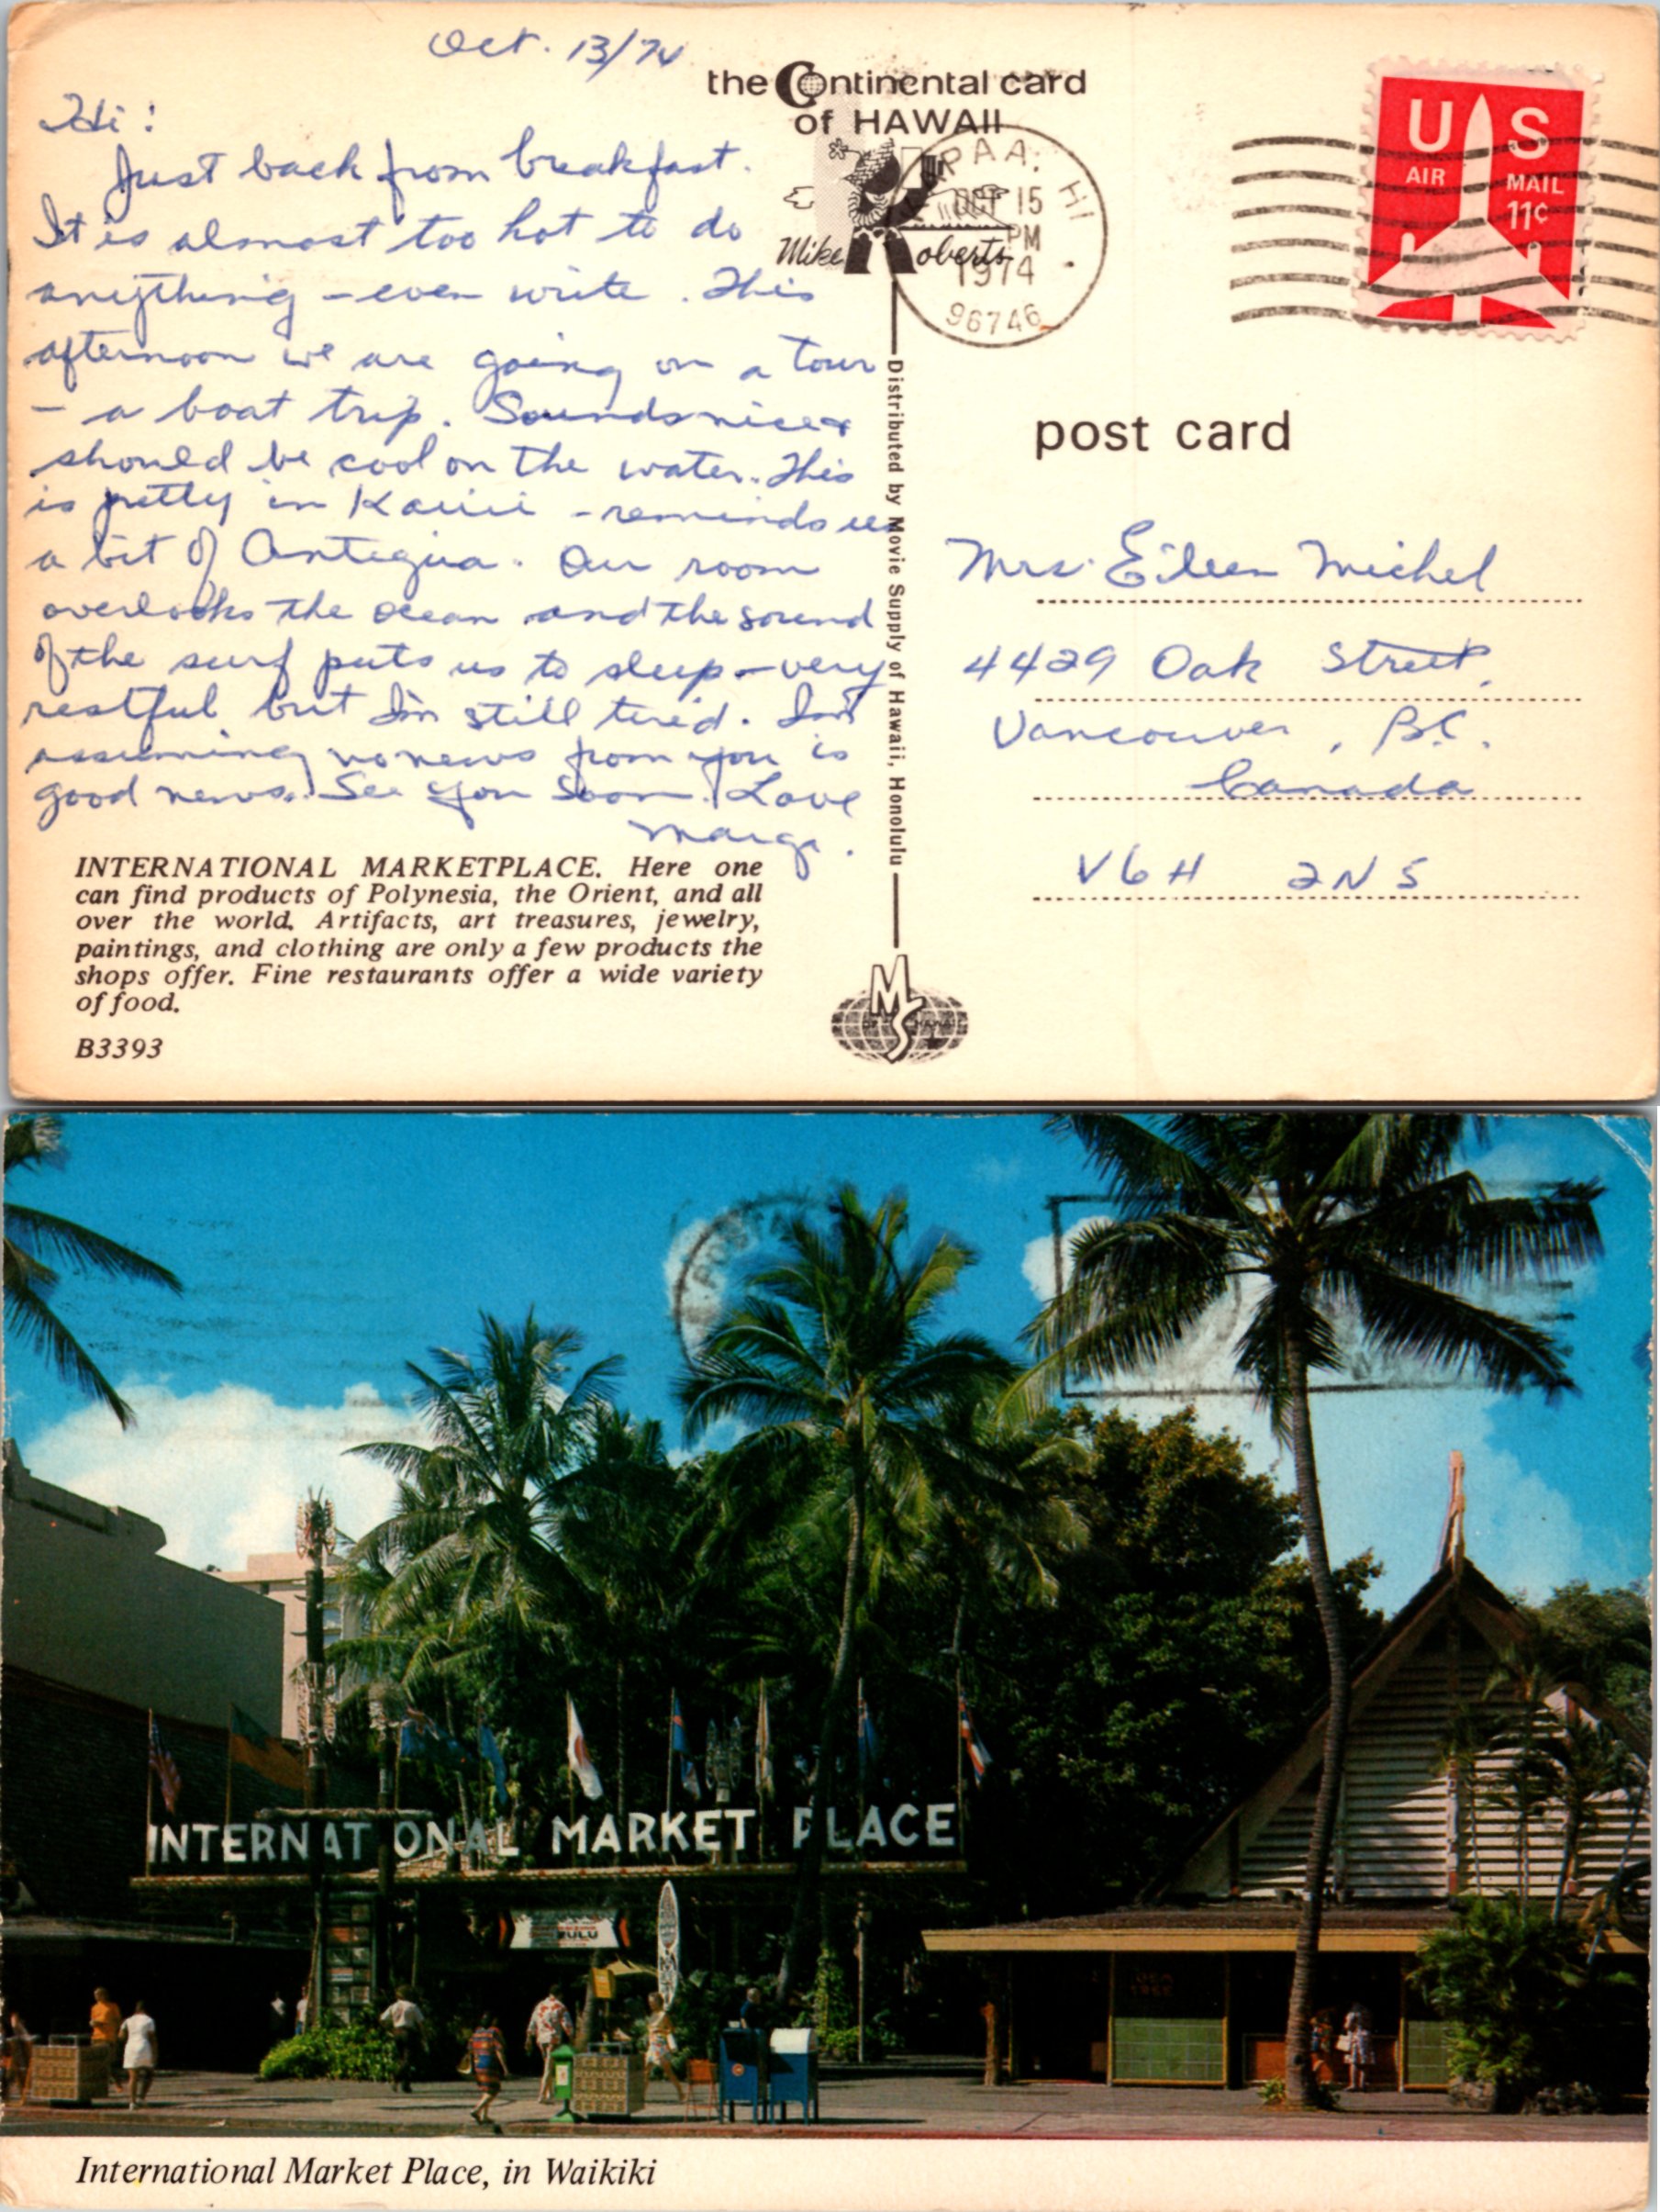 Oct. 13/74
Hi:
Just back from breakfast.
It is almost too hot to do
anything - even write. This
afternoon we are going on a tour
- a boat trip. Sounds nice &
should be cool on the water. This
is pretty in Kauii - reminds us
a bit of Antegua. Our room
overlooks the ocean and the sound
of the surf puts us to sleep - very
restful but I'm still tired. I'm
assuming no news from you is
good news. See you soon. Love
Marga.
INTERNATIONAL MARKETPLACE. Here one
can find products of Polynesia, the Orient, and all
over the world. Artifacts, art treasures, jewelry,
paintings, and clothing are only a few products the
shops offer. Fine restaurants offer a wide variety
of food.
B3393
the Continental card
of HAWAII
Mike Roberts
PAA, HI
OCT 15
PM
1974
96746
Distributed by Movie Supply of Hawaii, Honolulu
MS
US
AIR MAIL
11¢
post card
Mrs. Eileen Michel
4429 Oak Street,
Vancouver, B.C.
Canada
V6H 2N5
INTERNATIONAL MARKET PLACE
International Market Place, in Waikiki